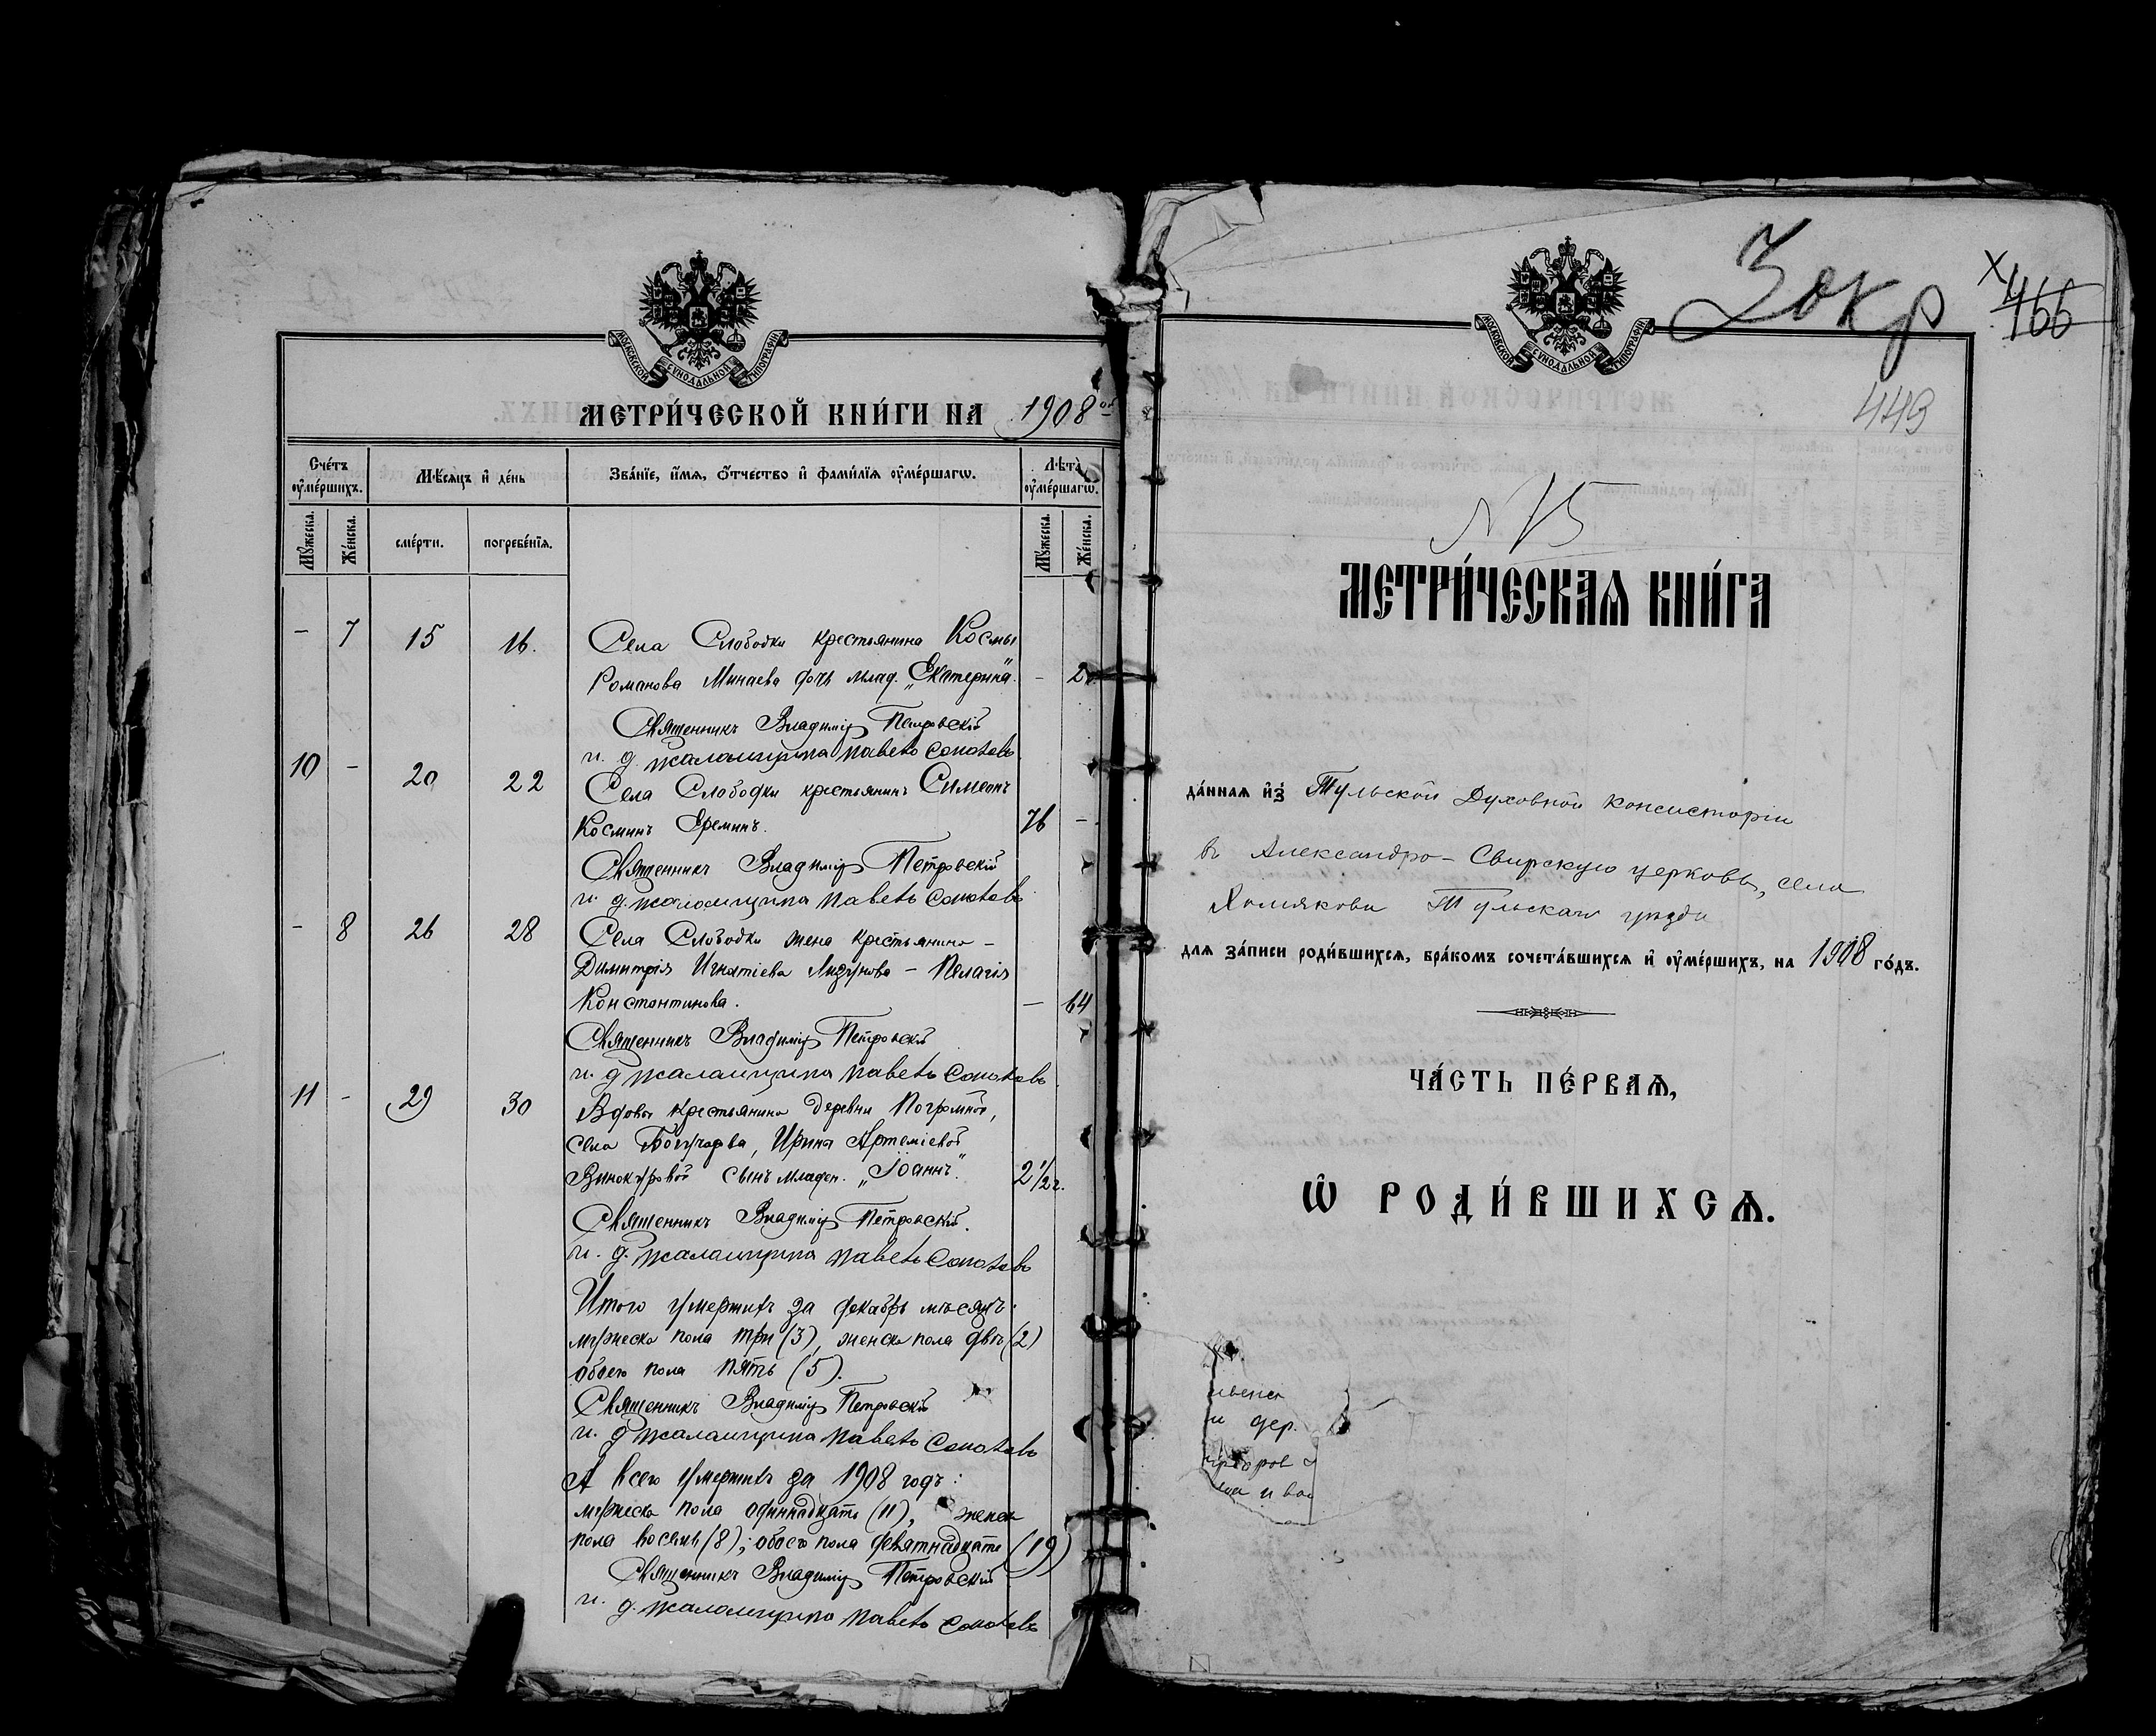 МОСКОВСКОЙ СѴНОДАЛЬНОЙ ТИПОГРАФІИ
МЕТРИ́ЧЕСКОЙ КНИ́ГИ НА 1908
Сче́тъ ѹ҆ме́ршихъ.
Мѣ́сяцъ и҆ де́нь
Зва́нїе, и҆́мѧ, ѻ҆́тчество и҆ фами́лїѧ ѹ҆ме́ршагѡ.
Лѣта̀ ѹ҆ме́ршагѡ.
Мꙋ́жеска.
Же́нска.
сме́рти.
погребе́нїѧ.
Мꙋ́жеска.
Же́нска.
- 7 15 16. Села Слободки крестьянина Космы
Романова Минаева дочь млад. „Екатерина". - 2
Священникъ Владиміръ Петровскій
и. д. псаломщика Павелъ Соколовъ
10 - 20 22 Села Слободки крестьянинъ Симеонъ
Косминъ Ереминъ. 76 -
Священникъ Владиміръ Петровскій
и. д. псаломщика Павелъ Соколовъ
- 8 26 28 Села Слободки жена крестьянина -
Димитрія Игнатіева - Пелагія
Константинова. - 64
Священникъ Владиміръ Петровскій
и. д псаломщика Павелъ Соколовъ
11 - 29 30 Вдовы крестьянина деревни
села Ирины Артеміевой
Винокуровой сынъ младен. „Іоаннъ". 2 1/2 г.
Священникъ Владиміръ Петровскій.
и. д. псаломщика Павелъ Соколовъ
Итого умершихъ за декабрь мѣсяцъ:
мужеска пола три (3), женска пола двѣ (2)
обоего пола пять (5).
Священникъ Владиміръ Петровскій
и. д псаломщика Павелъ Соколовъ
А всего умершихъ за 1908 годъ:
мужеска пола одиннадцать (11), женск
пола восемь (8); обоего пола девятнадцать (19)
Священникъ Владиміръ Петровскій
и. д. псаломщика Павелъ Соколовъ
Зокр
466
449
МОСКОВСКОЙ СѴНОДАЛЬНОЙ ТИПОГРАФІИ
N 15
МЕТРИ́ЧЕСКАѦ КНИ́ГА
да́ннаѧ и҆з̾ Тульской Духовной Консисторіи
въ Александро-Свирскую церковь, села
Хомякова Тульскаго уѣзда
длѧ за́писи роди́вшихсѧ, бра́комъ сочета́вшихсѧ и҆ ѹ҆ме́ршихъ, на 1908 го́дъ.
ЧА́СТЬ ПЕ́РВАѦ,
Ѡ҆ РОДИ́ВШИХСѦ.
и дер.